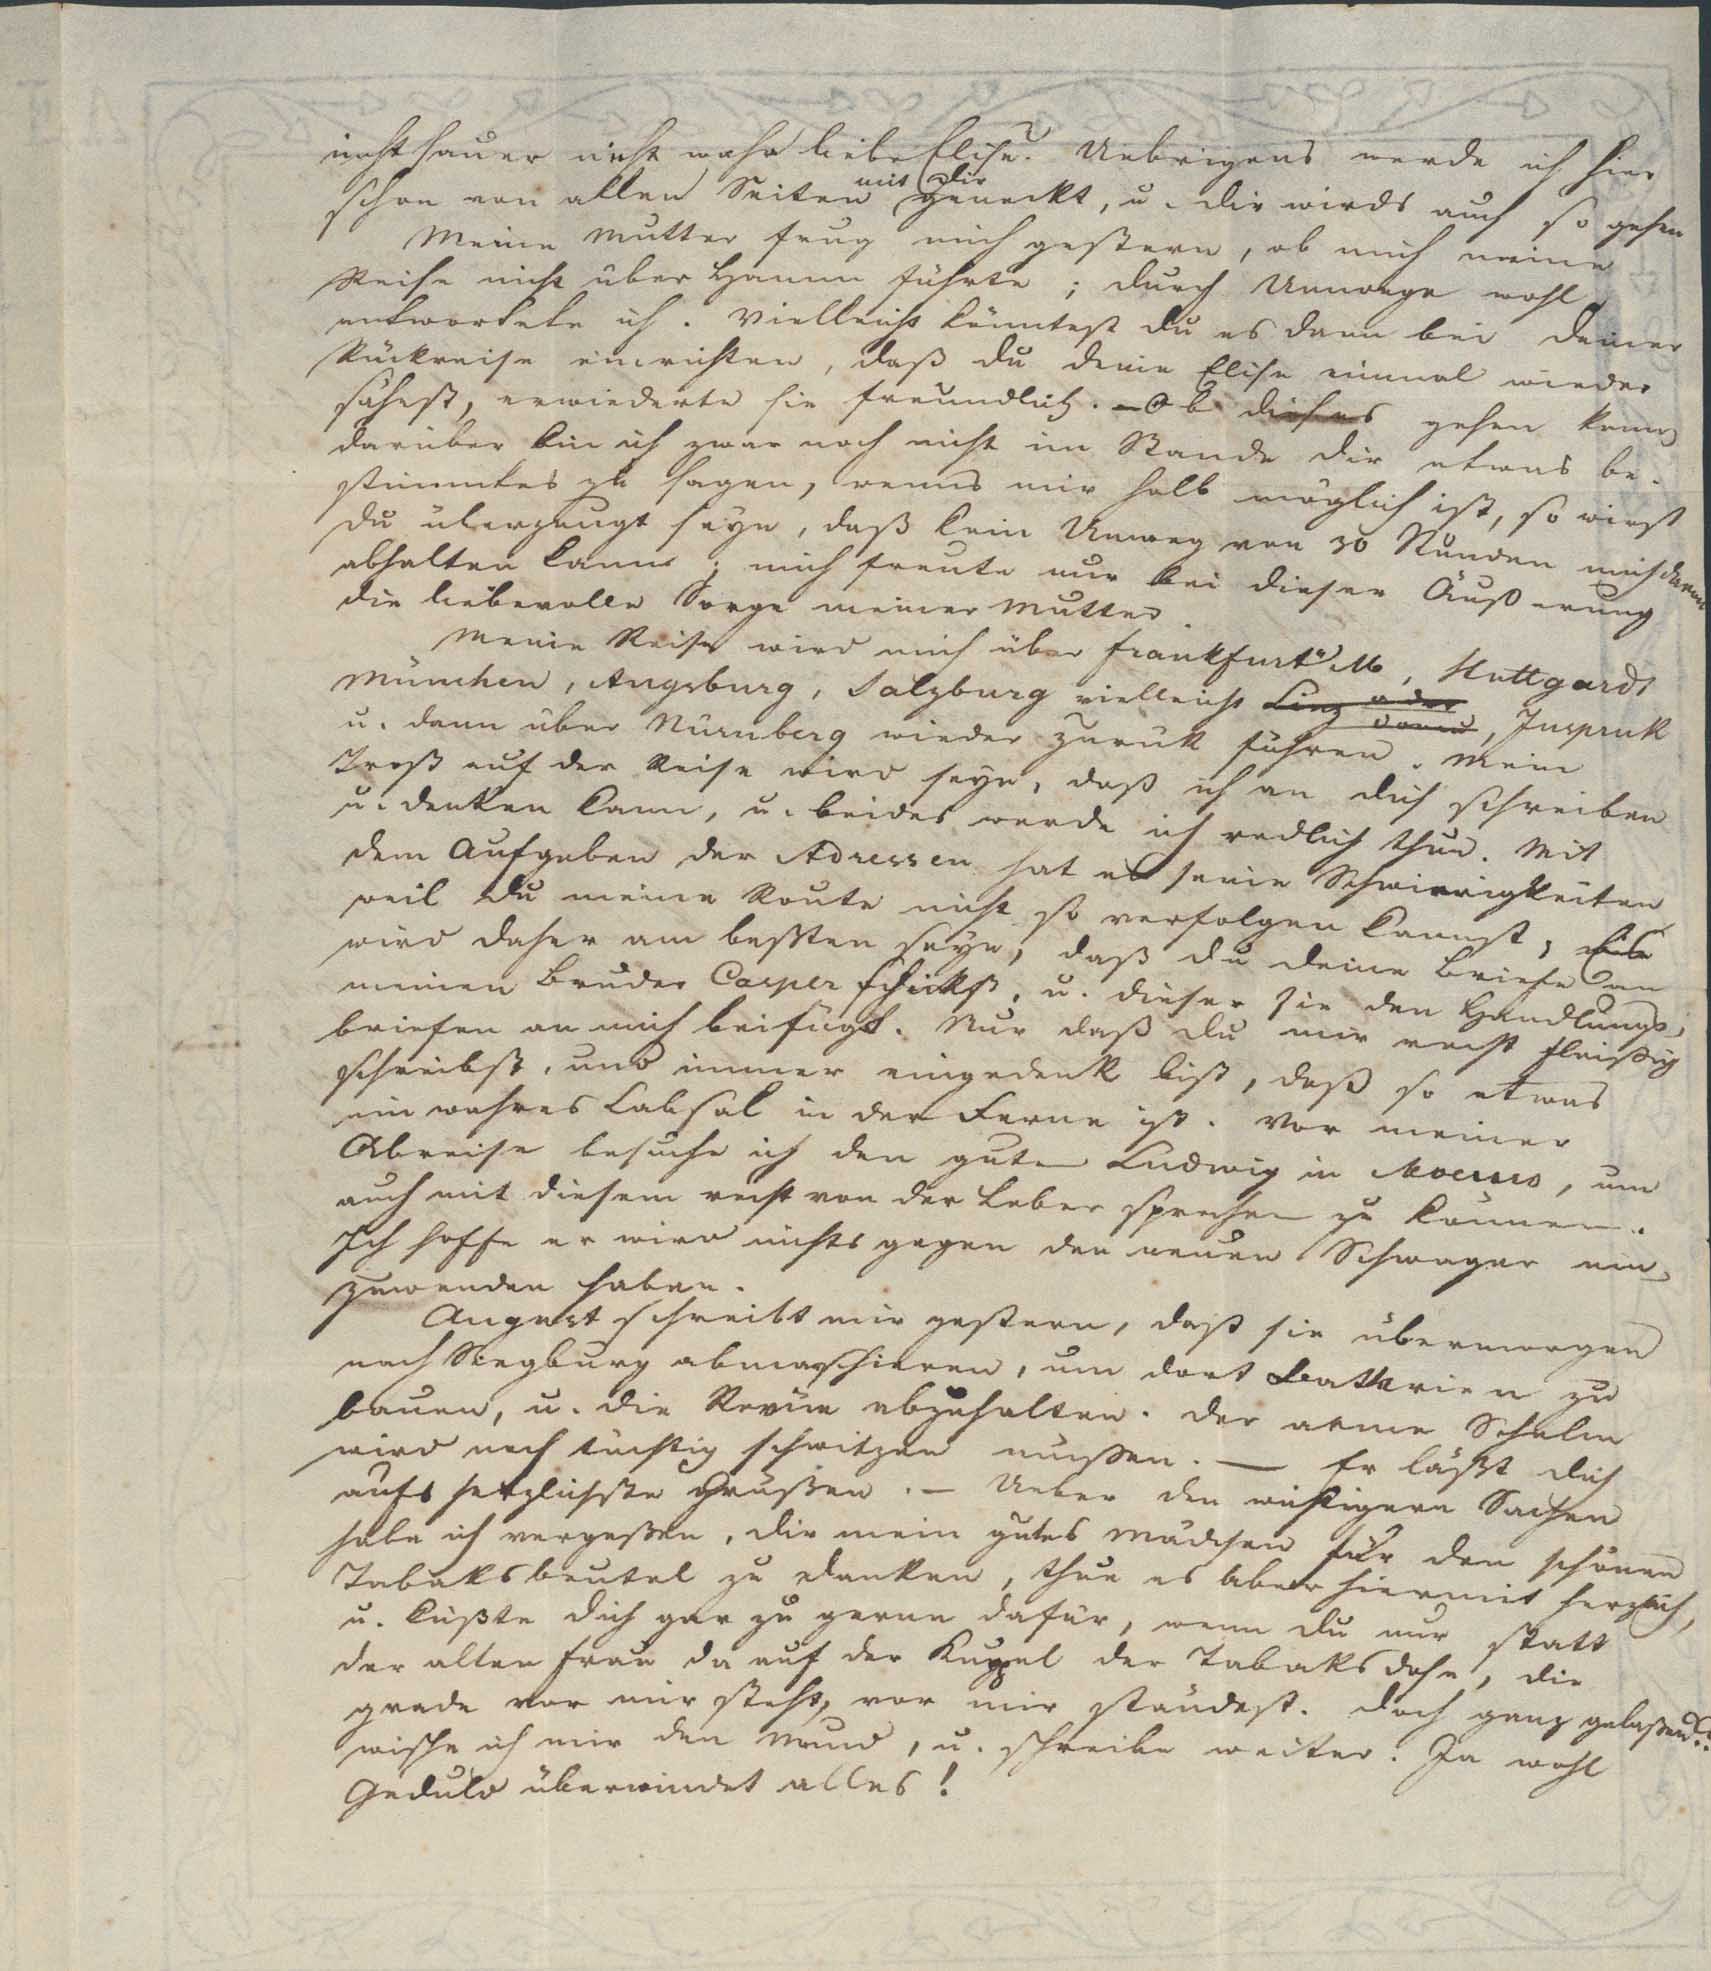 nicht sauer nicht wahr liebe Elise? Uebrigens werde ich hier
schon von allen Seiten mit Dir geneckt, u. Dir wirds auch so gehen
Meine Mutter frug mich gestern, ob mich meine
Reise nicht über Hamm führte; durch Umwege wohl
antwortete ich. Vielleicht könntest du es dann bei deiner
Rückreise einrichten, daß du deine Elise einmal wieder
sähest, erwiederte sie freundlich. – Ob dieses gehen kann,
darüber bin ich zwar noch nicht im Stande dir etwas be-
stimmtes zu sagen, wenns mir halb möglich ist, so wirst
du überzeugt seyn, daß kein Umweg von 30 Stunden mich davon
abhalten kann; mich freute nur bei dieser Äußerung
die liebevolle Sorge meiner Mutter.
Meine Reise wird mich über Frankfurt a/M, Stuttgardt
München, Augsburg, Salzburg vielleicht Linz oder, Inspruk
u. dann über Nürnberg wieder zurük führen. Mein
Trost auf der Reise wird seyn, daß ich an dich schreiben
u. denken kann, u. beides werde ich redlich thun. Mit
dem Aufgeben der Adressen hat es seine Schwierigkeiten
weil du meine Route nicht so verfolgen kannst; Es
wird daher am besten seyn, daß du deine Briefe an
meinen Bruder Casper schickst, u. dieser sie den Handlungs-
briefen an mich beifügt. Nur daß du mir recht fleißig
schreibst, und immer eingedenk bist, daß so etwas
ein wahres Labsal in der Ferne ist. Vor meiner
Abreise besuche ich den guten Ludwig in Moeurs, um
auch mit diesem recht von der Leber sprechen zu können.
Ich hoffe er wird nichts gegen den neuen Schwager ein-
zuwenden haben.
August schreibt mir gestern, daß sie übermorgen
nach Siegburg abmarschieren, um dort Batterien zu
bauen, u. die Revüe abzuhalten. Der arme Schelm
wird noch tüchtig schwitzen müssen. — Er läßt dich
aufs herzlichste Grüßen. – Ueber den wichtigern Sachen
habe ich vergeßen, dir mein gutes Mädchen für den schönen
Tabaksbeutel zu danken, thue es aber hiermit herzlich,
u. küßte dich gar zu gerne dafür, wenn du nur statt
der alten Frau da auf der Kuppel der Tabaksdose, die
grade vor mir steht, vor mir ständest. Doch ganz gelaßend
wische ich mir den Mund, u. schreibe weiter. Ja wohl
Geduld überwindet alles!